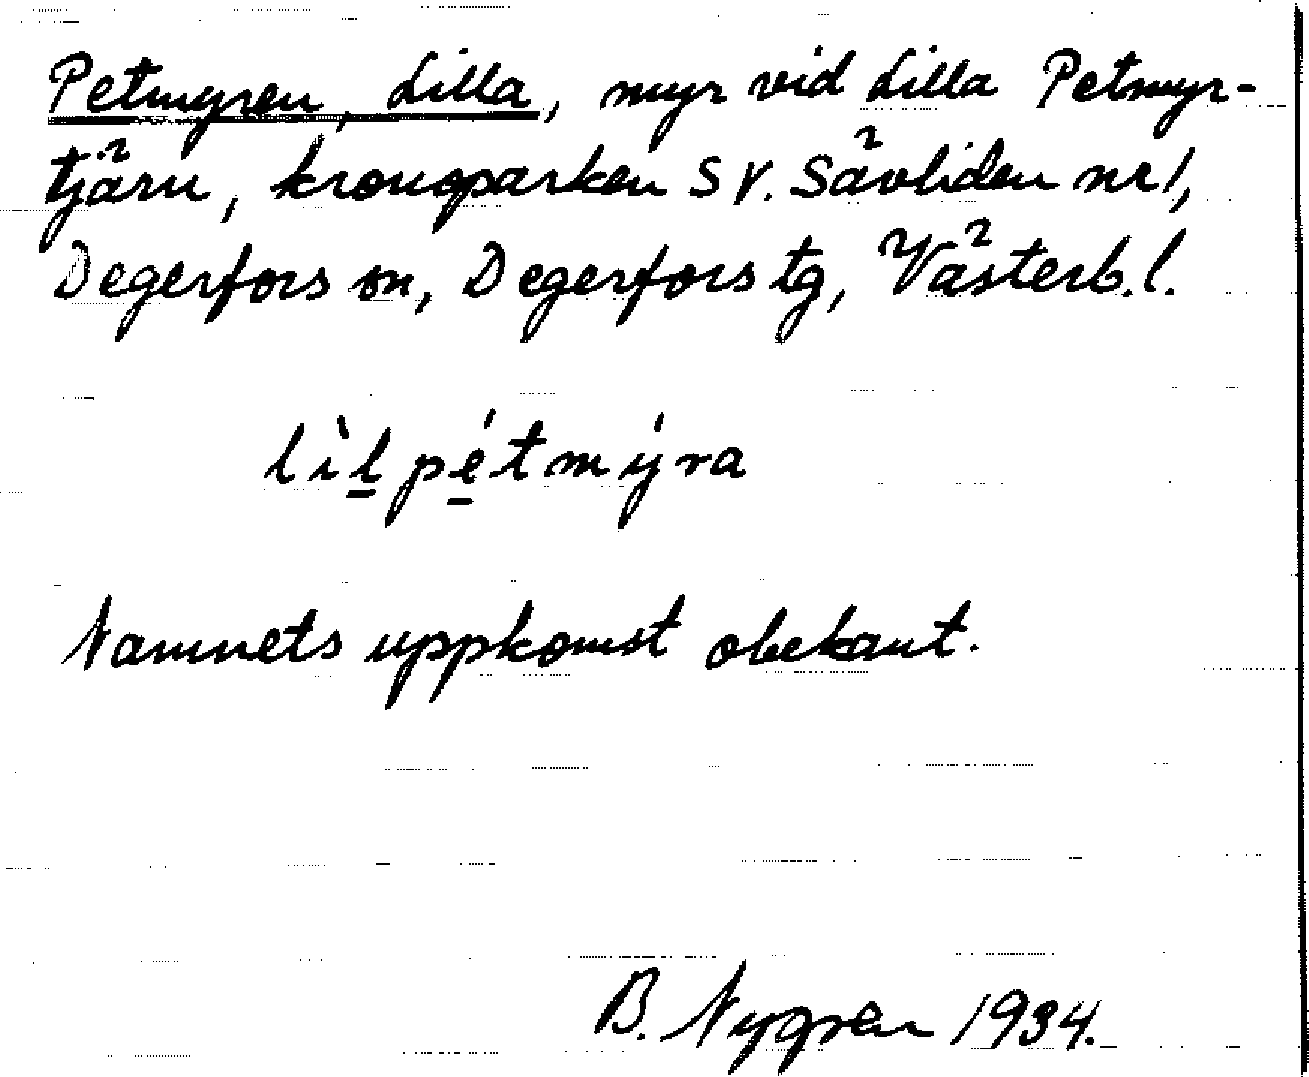 Petmyren, Lilla, myr vid Lilla Petmyr-
tjärn, kronoparken S V. Sävliden nr 1,
Degerfors sn, Degerfors tg, Västerb. l.
lìl̲pé̲tmýra
Namnets uppkomst obekant.
B. Nygren 1934.